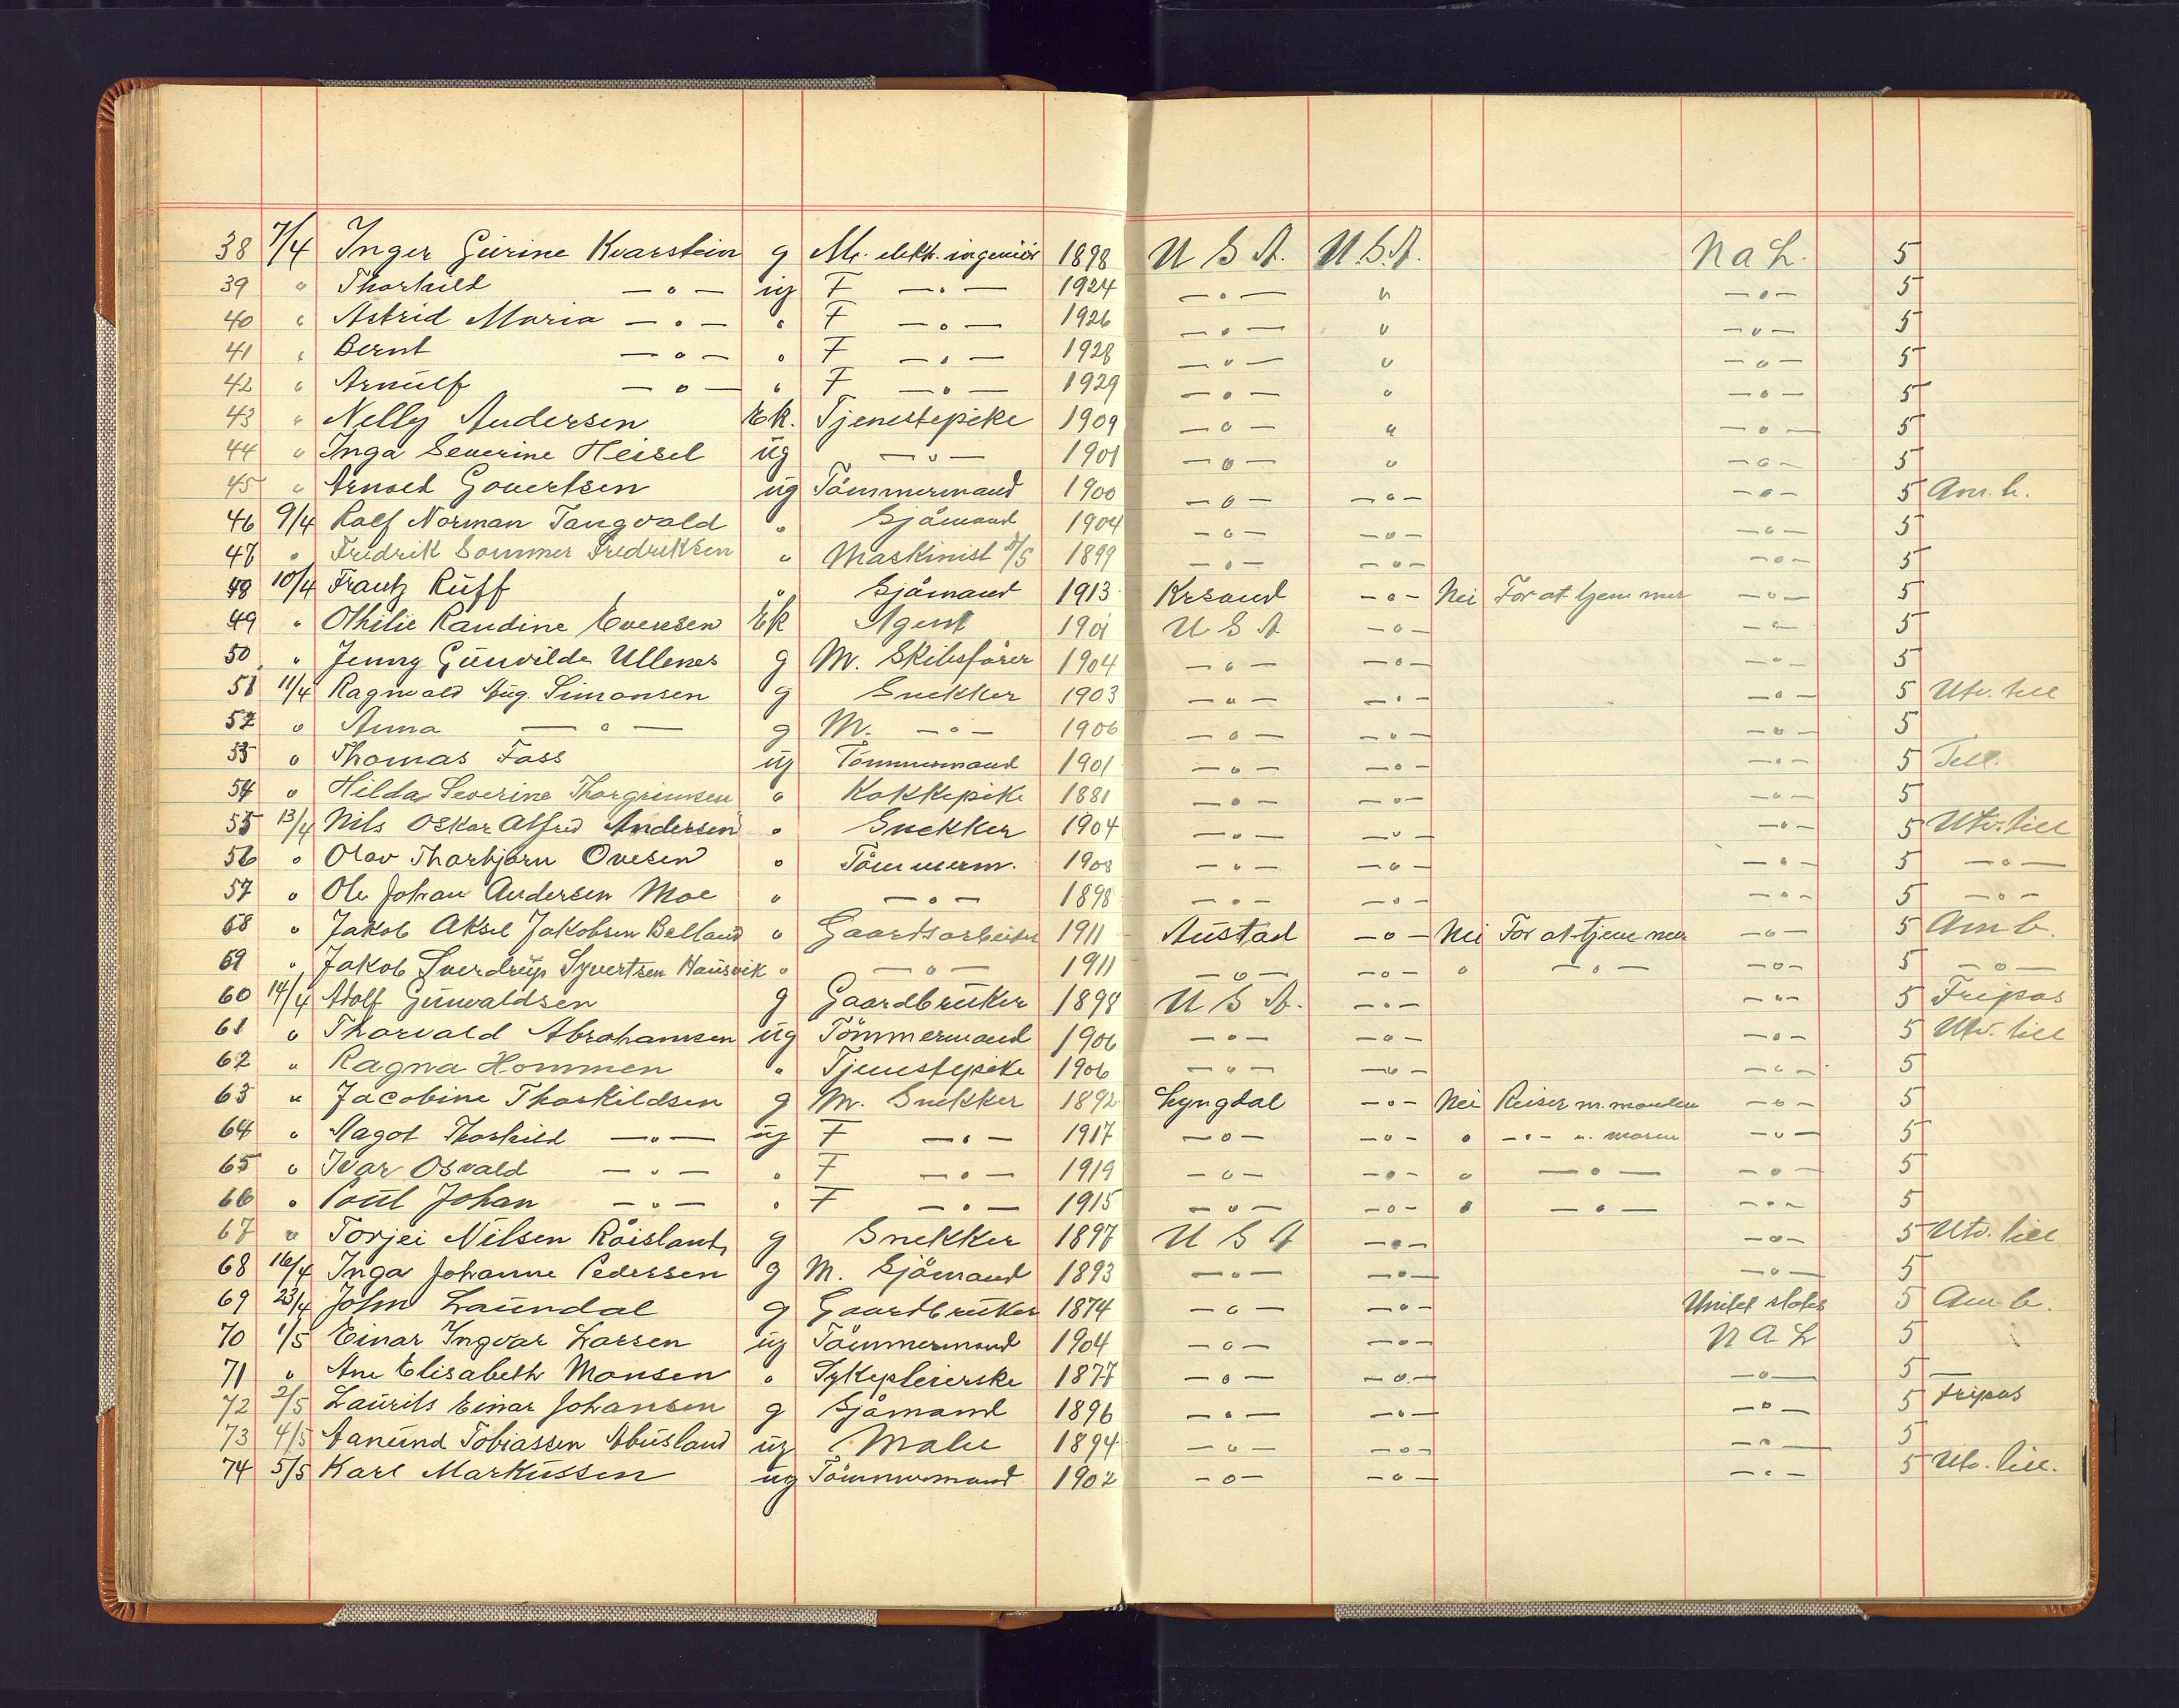 38 7/4 Inger Gurine Kvarstein g M. elektr. ingeniör 1898 U S A. U.S.A. N a L. 5
39 " Thorkild —"— ug F —"— 1924 —"— " —"— 5
40 " Astrid Maria —"— " F —"— 1926 —"— " —"— 5
41 " Bernt —"— " F —"— 1928 —"— " —"— 5
42 " Arnulf —"— " F —"— 1929 —"— " —"— 5
43 " Nelly Andersen Ek. Tjenestepike 1909 —"— " —"— 5
44 " Inga Severine Heisel ug —"— 1901 —"— " —"— 5
45 " Arnold Govertsen ug Tömmermand 1900 —"— —"— —"— 5 Am. b.
46 9/4 Rolf Norman Tangvald " Sjömand 1904 —"— —"— —"— 5
47 " Fredrik Sommer Fredriksen " Maskinist D/S 1899 —"— —"— —"— 5
48 10/4 Frantz Ruff " Sjömand 1913 Krsand —"— Nei For at tjene mer —"— 5
49 " Othilie Randine Evensen Ek Agent 1901 U S A —"— —"— 5
50 " Jenny Gunvilde Ullenes g M. Skibsförer 1904 —"— —"— —"— 5
51 11/4 Ragnvald Aug. Simonsen g Snekker 1903 —"— —"— —"— 5 Utv. till
52 " Anna —"— g M. —"— 1906 —"— —"— —"— 5
53 " Thomas Foss ug Tömmermand 1901 —"— —"— —"— 5 Till.
54 " Hilda Severine Thorgrimsen " Kokkepike 1881 —"— —"— —"— 5
55 13/4 Nils Oskar Alfred Andersen " Snekker 1904 —"— —"— —"— 5 Utv. till
56 " Olav Thorbjörn Ovesen " Tömmerm. 1903 —"— —"— —"— 5 —"—
57 " Ole Johan Andersen Moe " —"— 1898 —"— —"— —"— 5 —"—
58 " Jakob Aksel Jakobsen Belland " Gaardsarbeider 1911 Austad —"— Nei For at tjene mer —"— 5 Am b.
59 " Jakob Sverdrup Syvertsen Hausvik " —"— 1911 —"— —"— " —"— —"— 5 —"—
60 14/4 Adolf Gunvaldsen g Gaardbruker 1898 U S A. —"— —"— 5 Fripas
61 " Thorvald Abrahamsen ug Tömmermand 1906 —"— —"— —"— 5 Utv. till
62 " Ragna Hommen " Tjenestepike 1906 —"— —"— —"— 5
63 " Jacobine Thorkildsen g M. Snekker 1892 Lyngdal —"— Nei Reiser m. manden —"— 5
64 " Magot Thorhild —"— ug F —"— 1917 —"— —"— " —"— m. moren —"— 5
65 " Ivar Osvald —"— " F —"— 1919 —"— —"— " —"— —"— 5
66 " Poul Johan —"— " F —"— 1915 —"— —"— " —"— —"— 5
67 " Torjei Nilsen Röisland g Snekker 1897 U S A —"— —"— 5 Utv. till
68 16/4 Inga Johanne Pedersen g M. Sjömand 1893 —"— —"— —"— 5
69 23/4 John Laundal g Gaardbruker 1874 —"— —"— United states 5 Am b.
70 1/5 Einar Ingvar Larsen ug Tömmermand 1904 —"— —"— N A L 5
71 " Ane Elisabeth Monsen " Sykepleierske 1877 —"— —"— —"— 5 —
72 2/5 Laurits Einar Johansen g Sjömand 1896 —"— —"— —"— 5 Fripas
73 4/5 Aanund Tobiassen Abusland ug Maler 1894 —"— —"— —"— 5
74 5/5 Karl Markussen ug Tömmermand 1902 —"— —"— —"— 5 Utv. till.